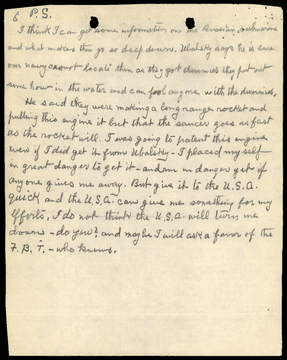 6 P.S.
I think I can get some information on the Russian submarines
and what makes them go so deep down. Ubalsky says he is sure
our navy cannot locate them as they got dummies they put out
some how in the water and can fool anyone with the dummies,
He said they were making a long range rocket and
putting this engine in it but that the saucer goes as fast
as the rocket will. I was going to patent this engine
even if I did get it from Ubalsky - I placed my self
in great danger to get it - and am in danger yet if
anyone gives me away. But give it to the U.S.A.
quick and the U.S.A. can give me something for my
efforts, I do not think the U.S.A. will turn me
down - do you? and maybe I will ask a favor of the
F.B.I. - who knows.